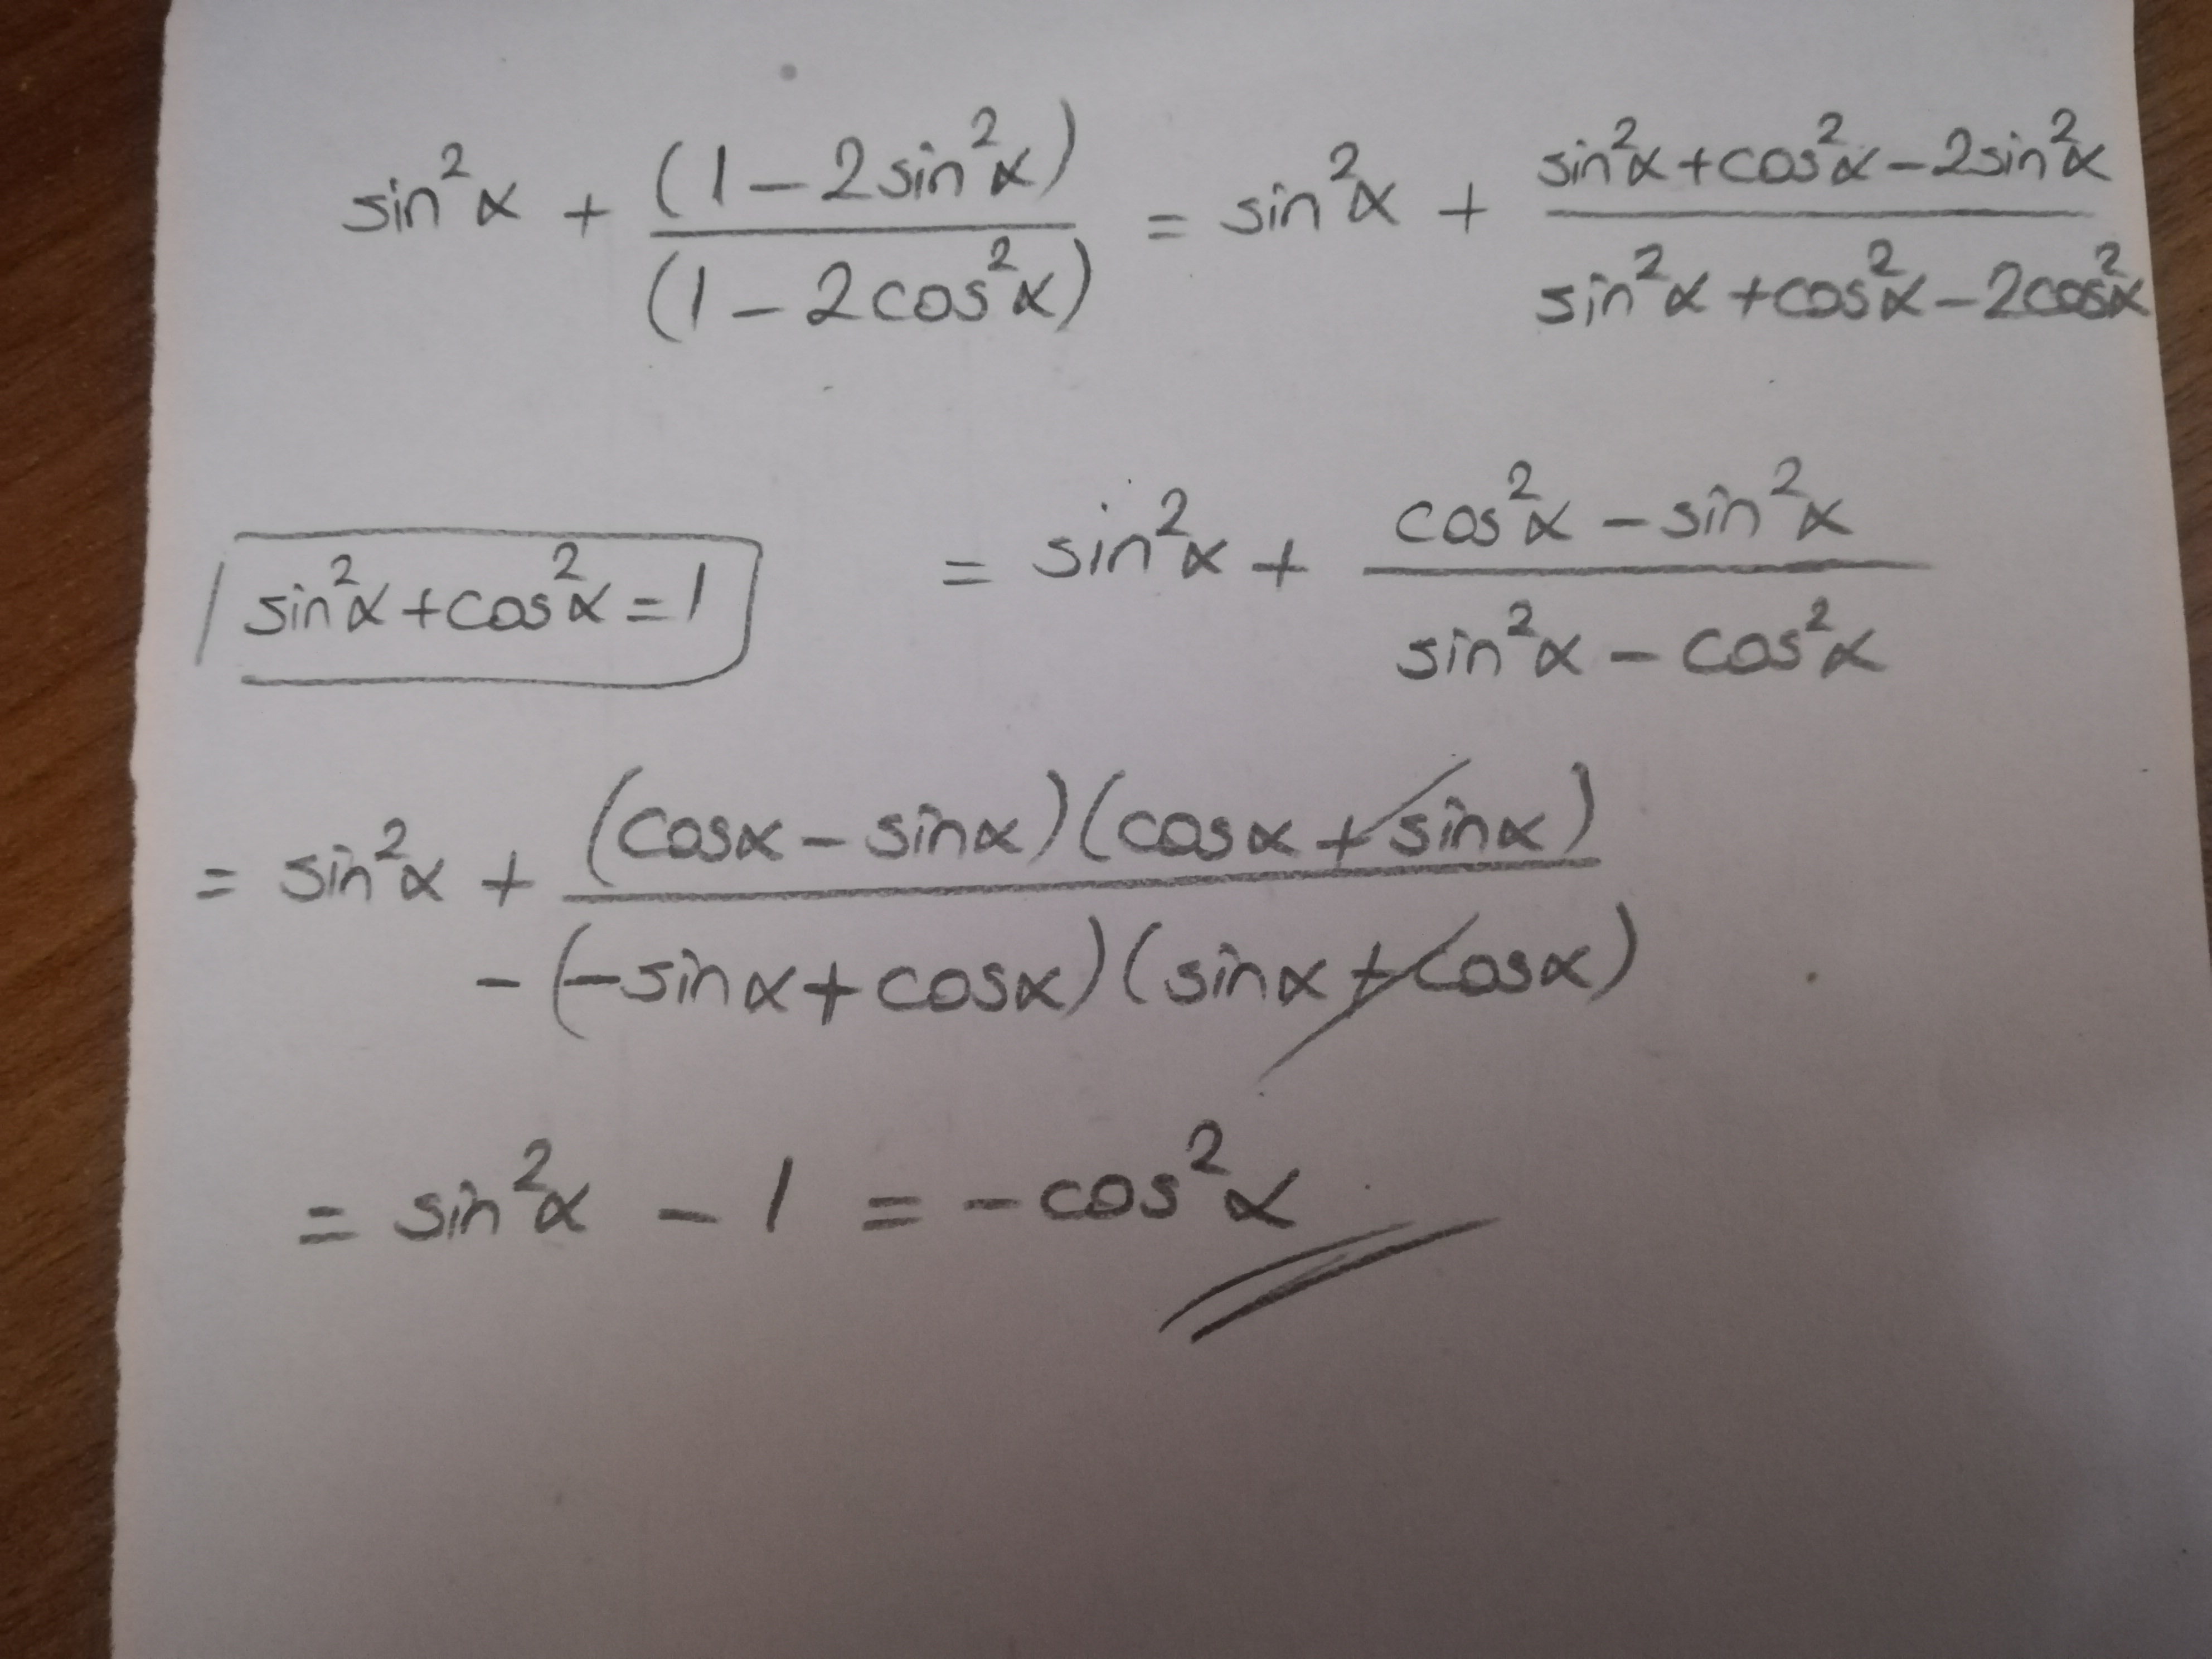 sin²α + (1 − 2sin²α) / (1 − 2cos²α) = sin²α + (sin²α + cos²α − 2sin²α) / (sin²α + cos²α − 2cos²α)
sin²α + cos²α = 1
= sin²α + (cos²α − sin²α) / (sin²α − cos²α)
= sin²α + (cosα − sinα)(cosα + sinα) / −(−sinα + cosα)(sinα + cosα)
= sin²α − 1 = −cos²α